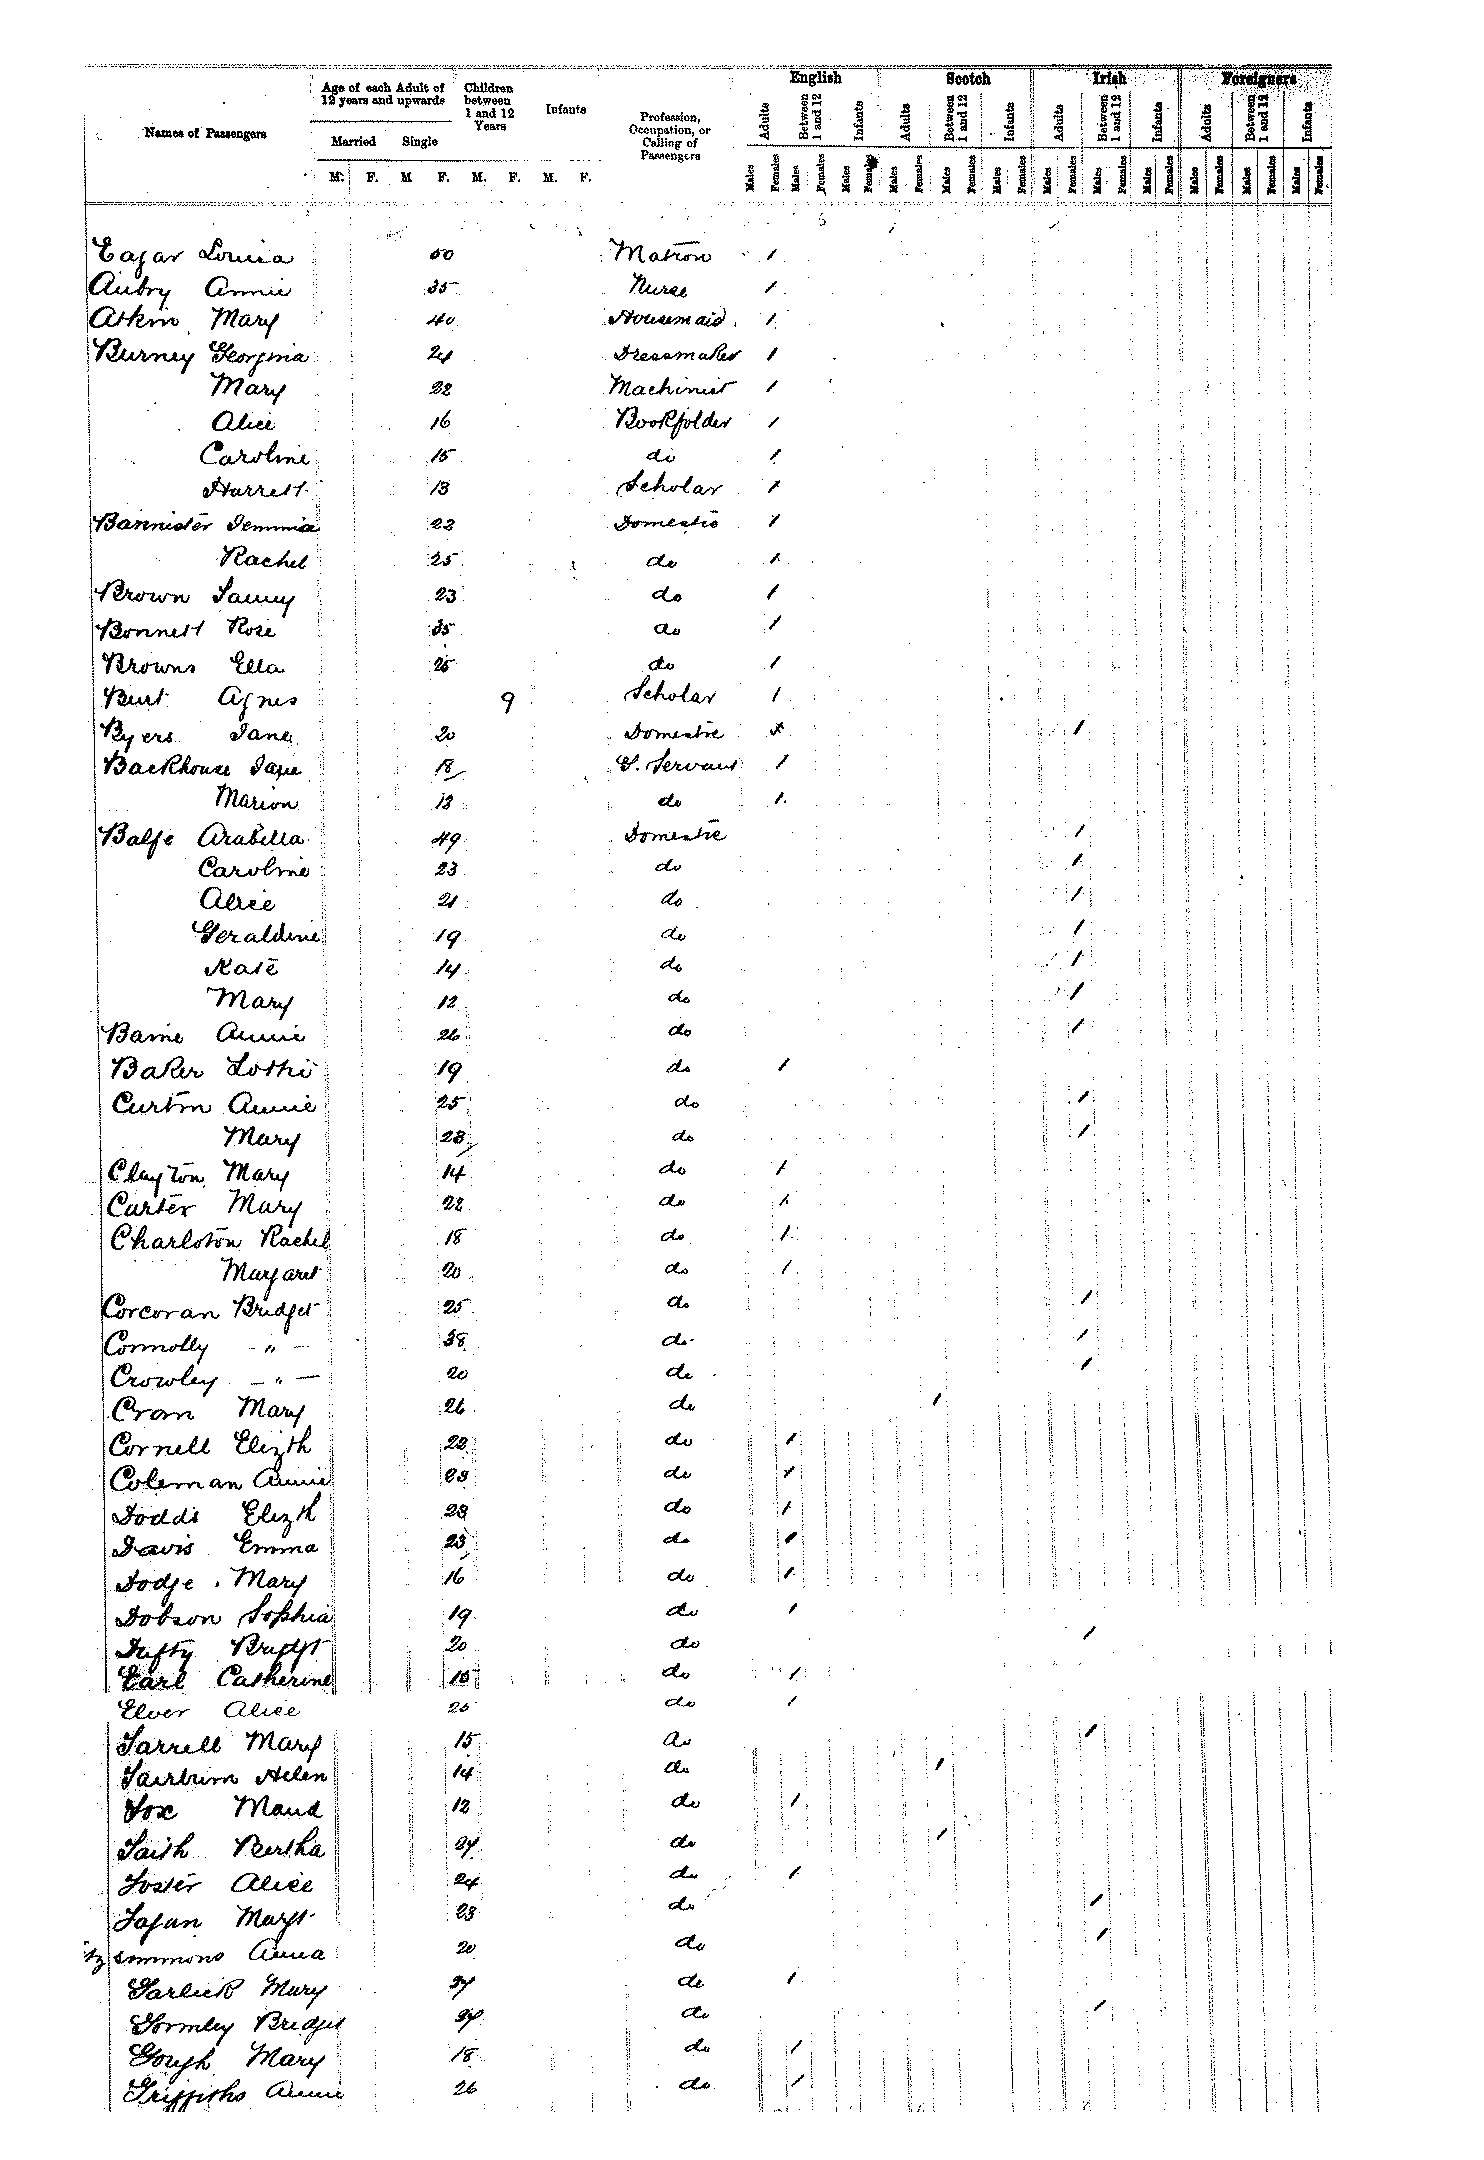 English Scotch Irish Foreigners
Names of Passengers
Age of each Adult of 12 years and upwards
Children between 1 and 12 Years
Infants
Profession, Occupation, or Calling of Passengers
Adults Between 1 and 12 Infants Adults Between 1 and 12 Infants Adults Between 1 and 12 Infants Adults Between 1 and 12 Infants
Married Single
M. F. M F. M. F. M. F.
Males Females Males Females Males Females Males Females Males Females Males Females Males Females Males Females Males Females Males Females Males Females Males Females
Eagar Louisa 50 Matron 1
Aubry Annie 35 Nurse 1
Atkin Mary 40 Housemaid 1
Burney Georgina 24 Dressmaker 1
Mary 22 Machinist 1
Alice 16 Bookfolder 1
Caroline 15 do 1
Harrett 13 Scholar 1
Bannister Jemmia 22 Domestic 1
Rachel 25 do 1
Brown Fanny 23 do 1
Bonnett Rose 35 do 1
Browns Ella 25 do 1
Burt Agnes 9 Scholar 1
Byers Jane 20 Domestic 1
Backhouse Jane 18 G. Servant 1
Marion 13 do 1
Balfe Arabella 49 Domestic 1
Caroline 23 do 1
Alice 21 do 1
Geraldine 19 do 1
Kate 14 do 1
Mary 12 do 1
Barrie Annie 26 do 1
Baker Lottie 19 do 1
Curtin Annie 25 do 1
Mary 23 do 1
Clayton Mary 14 do 1
Carter Mary 22 do 1
Charlston Rachel 18 do 1
Margaret 20 do 1
Corcoran Bridget 25 do 1
Connolly - " - 38 do 1
Crowley - " - 20 do 1
Cran Mary 26 do 1
Cornell Elizth 22 do 1
Coleman Annie 23 do 1
Dodds Elizth 23 do 1
Davis Emma 23 do 1
Dodge Mary 16 do 1
Dobson Sophia 19 do 1
Dufty Bridgt 20 do 1
Earl Catherine 18 do 1
Elver Alice 25 do 1
Farrell Mary 15 do 1
Fairburn Helen 14 do 1
Fox Maud 12 do 1
Faith Bertha 24 do 1
Foster Alice 24 do 1
Fagan Margt 23 do 1
itzsimmons Anna 20 do 1
Garlick Mary 24 do 1
Gormley Bridget 24 do 1
Gough Mary 18 do 1
Griffiths Annie 26 do 1